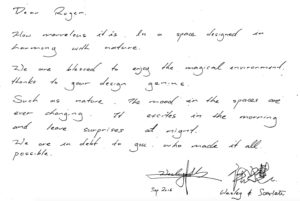 Dear Roger.
How marvelous it is. In a space designed in
harmony with nature.
We are blessed to enjoy the magical environment,
thanks to your design genius.
Such as nature. The mood in the spaces are
ever changing. It excites in the morning
and leave surprises at night.
We are in debt to you. who made it all
possible.
Sep 2016
&